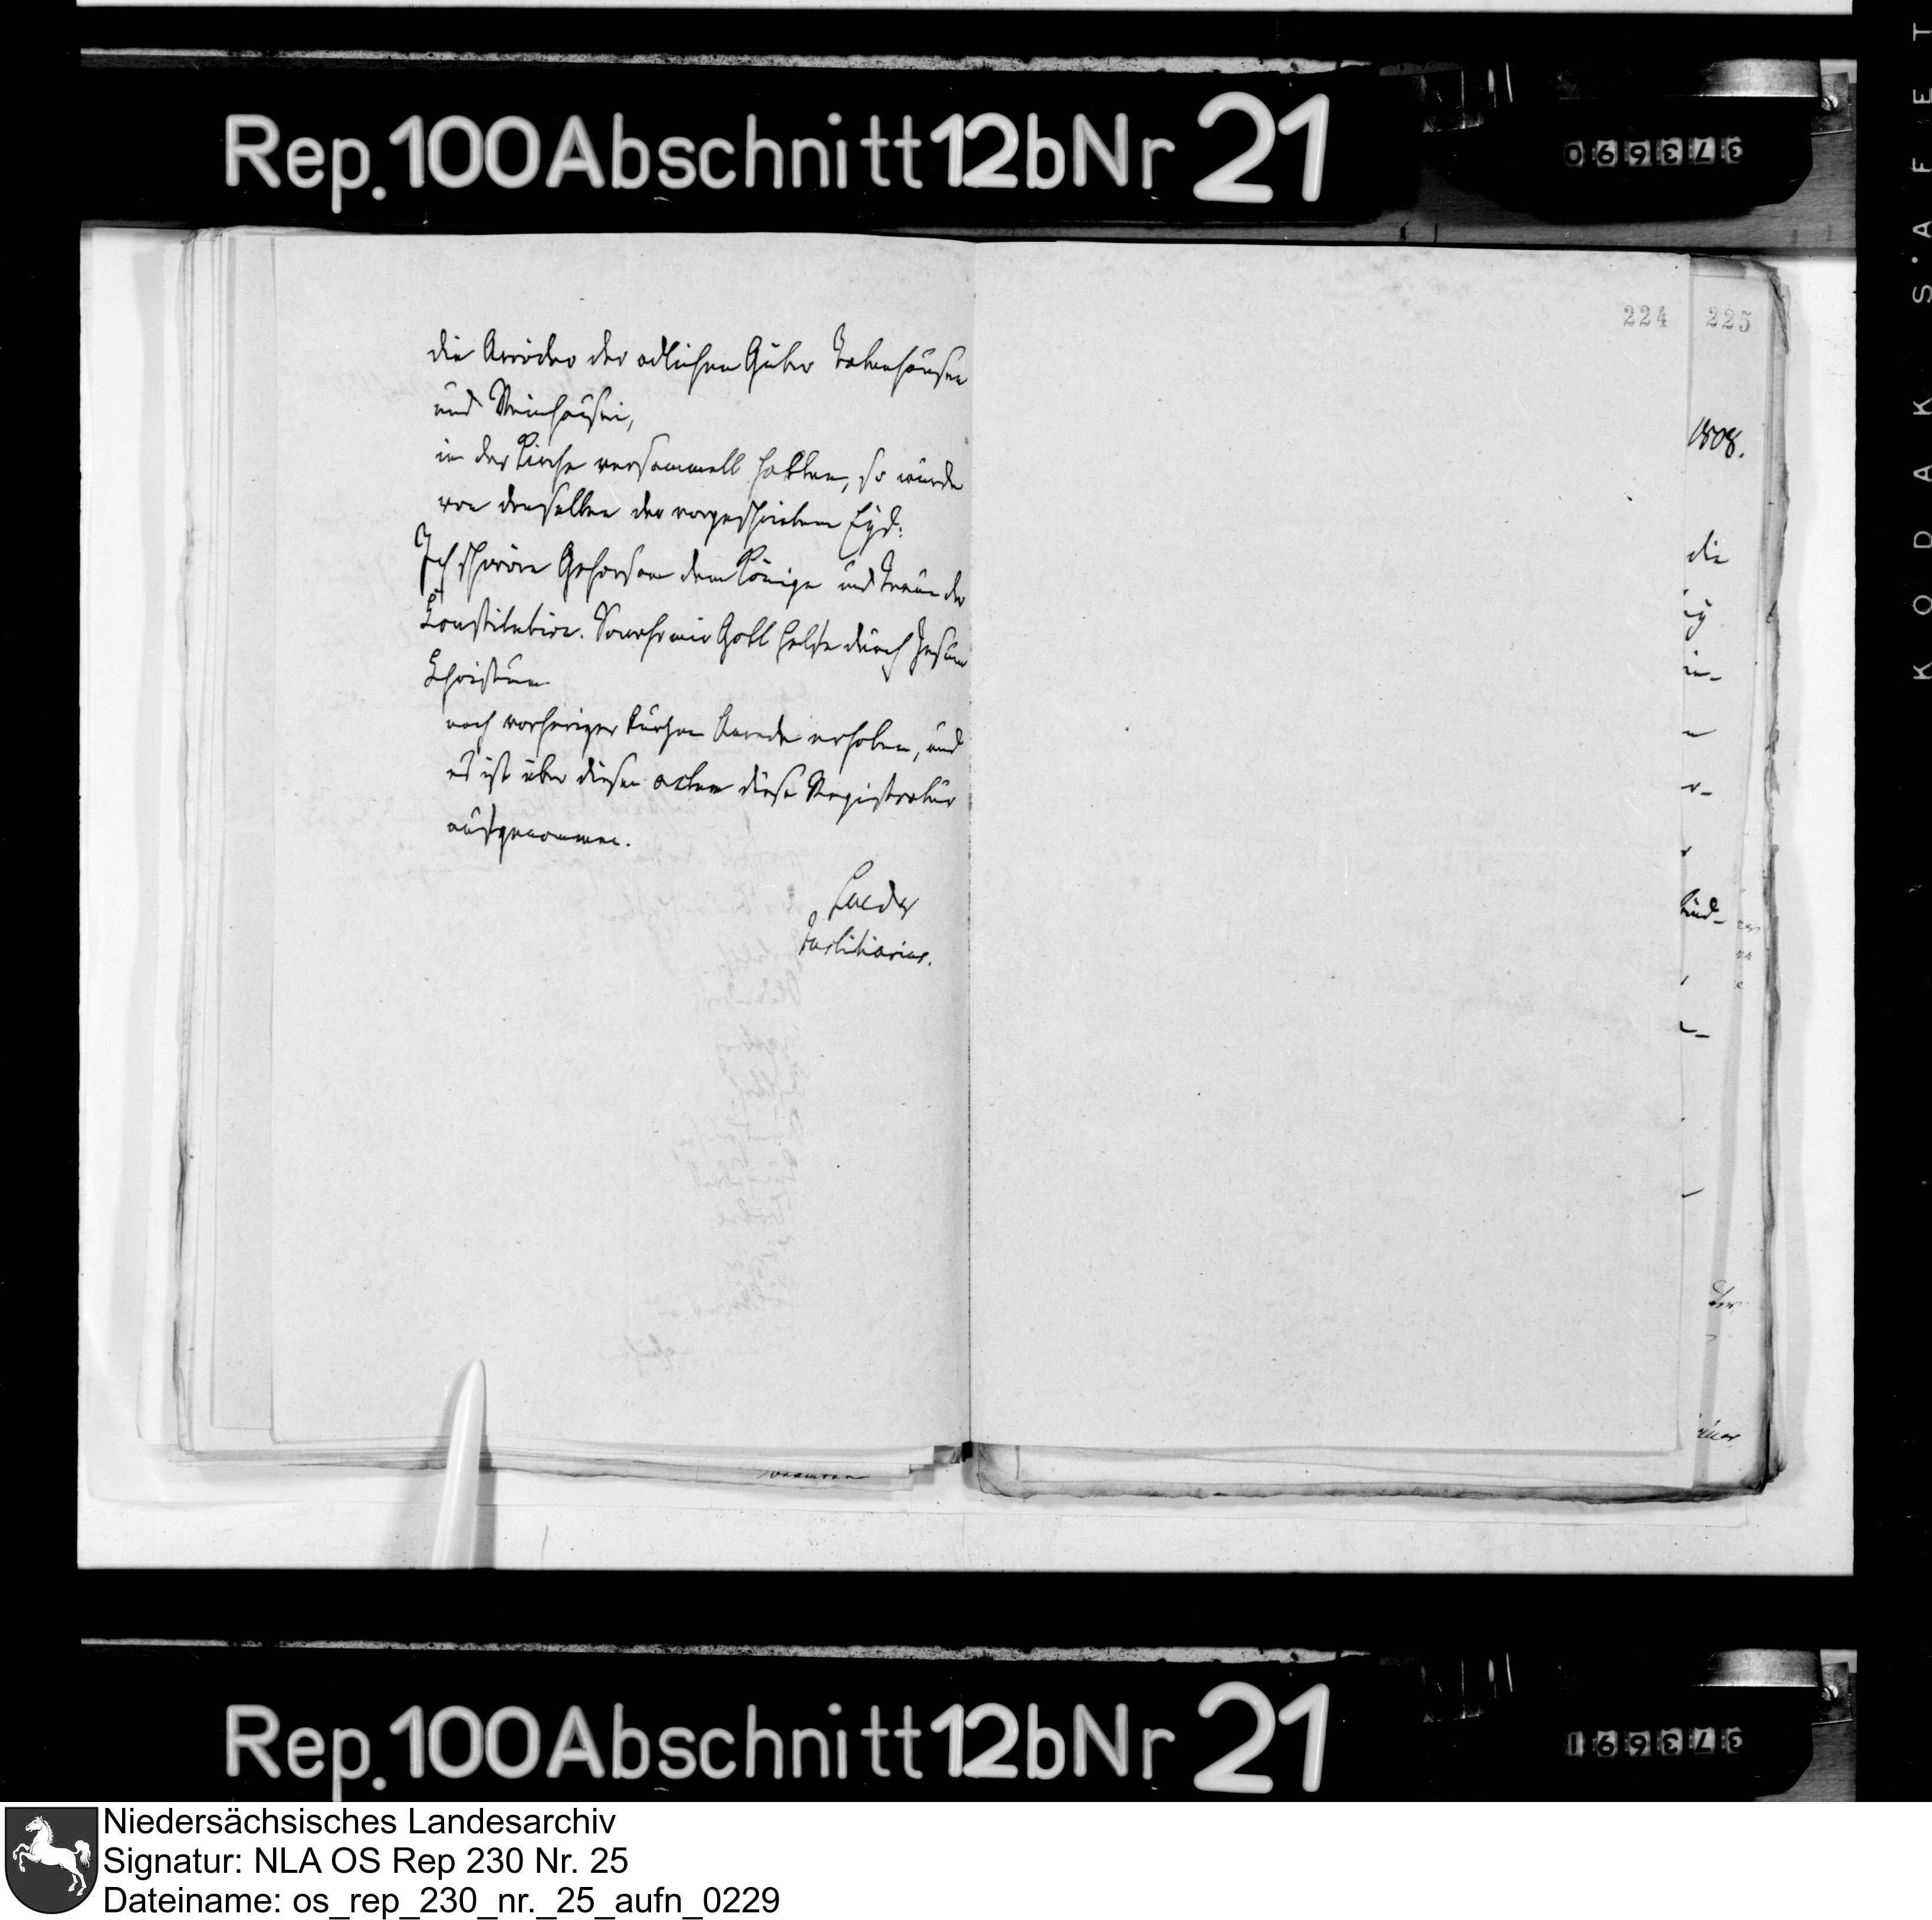 Rep. 100 Abschnitt 12b Nr 21
373690
KODAK S'AFET
224
225
die Amöder der adlichen Güter Tatenhausen
und Steinhausen,
in der Kirche versammelt hatten, so wurde
von denselben der vorgeschriebene Eyd:
Ich schwöre Gehorsam dem Könige und Treue der
Constitution. So wahr mir Gott helfe durch Jesum
Christum
nach vorheriger kurzen Anrede erhoben, und
es ist über diesen actum diese Registratur
aufgenommen.
Lueder
Justitiarius.
1808.
die
Rep. 100 Abschnitt 12b Nr 21
373691
Niedersächsisches Landesarchiv
Signatur: NLA OS Rep 230 Nr. 25
Dateiname: os_rep_230_nr._25_aufn_0229